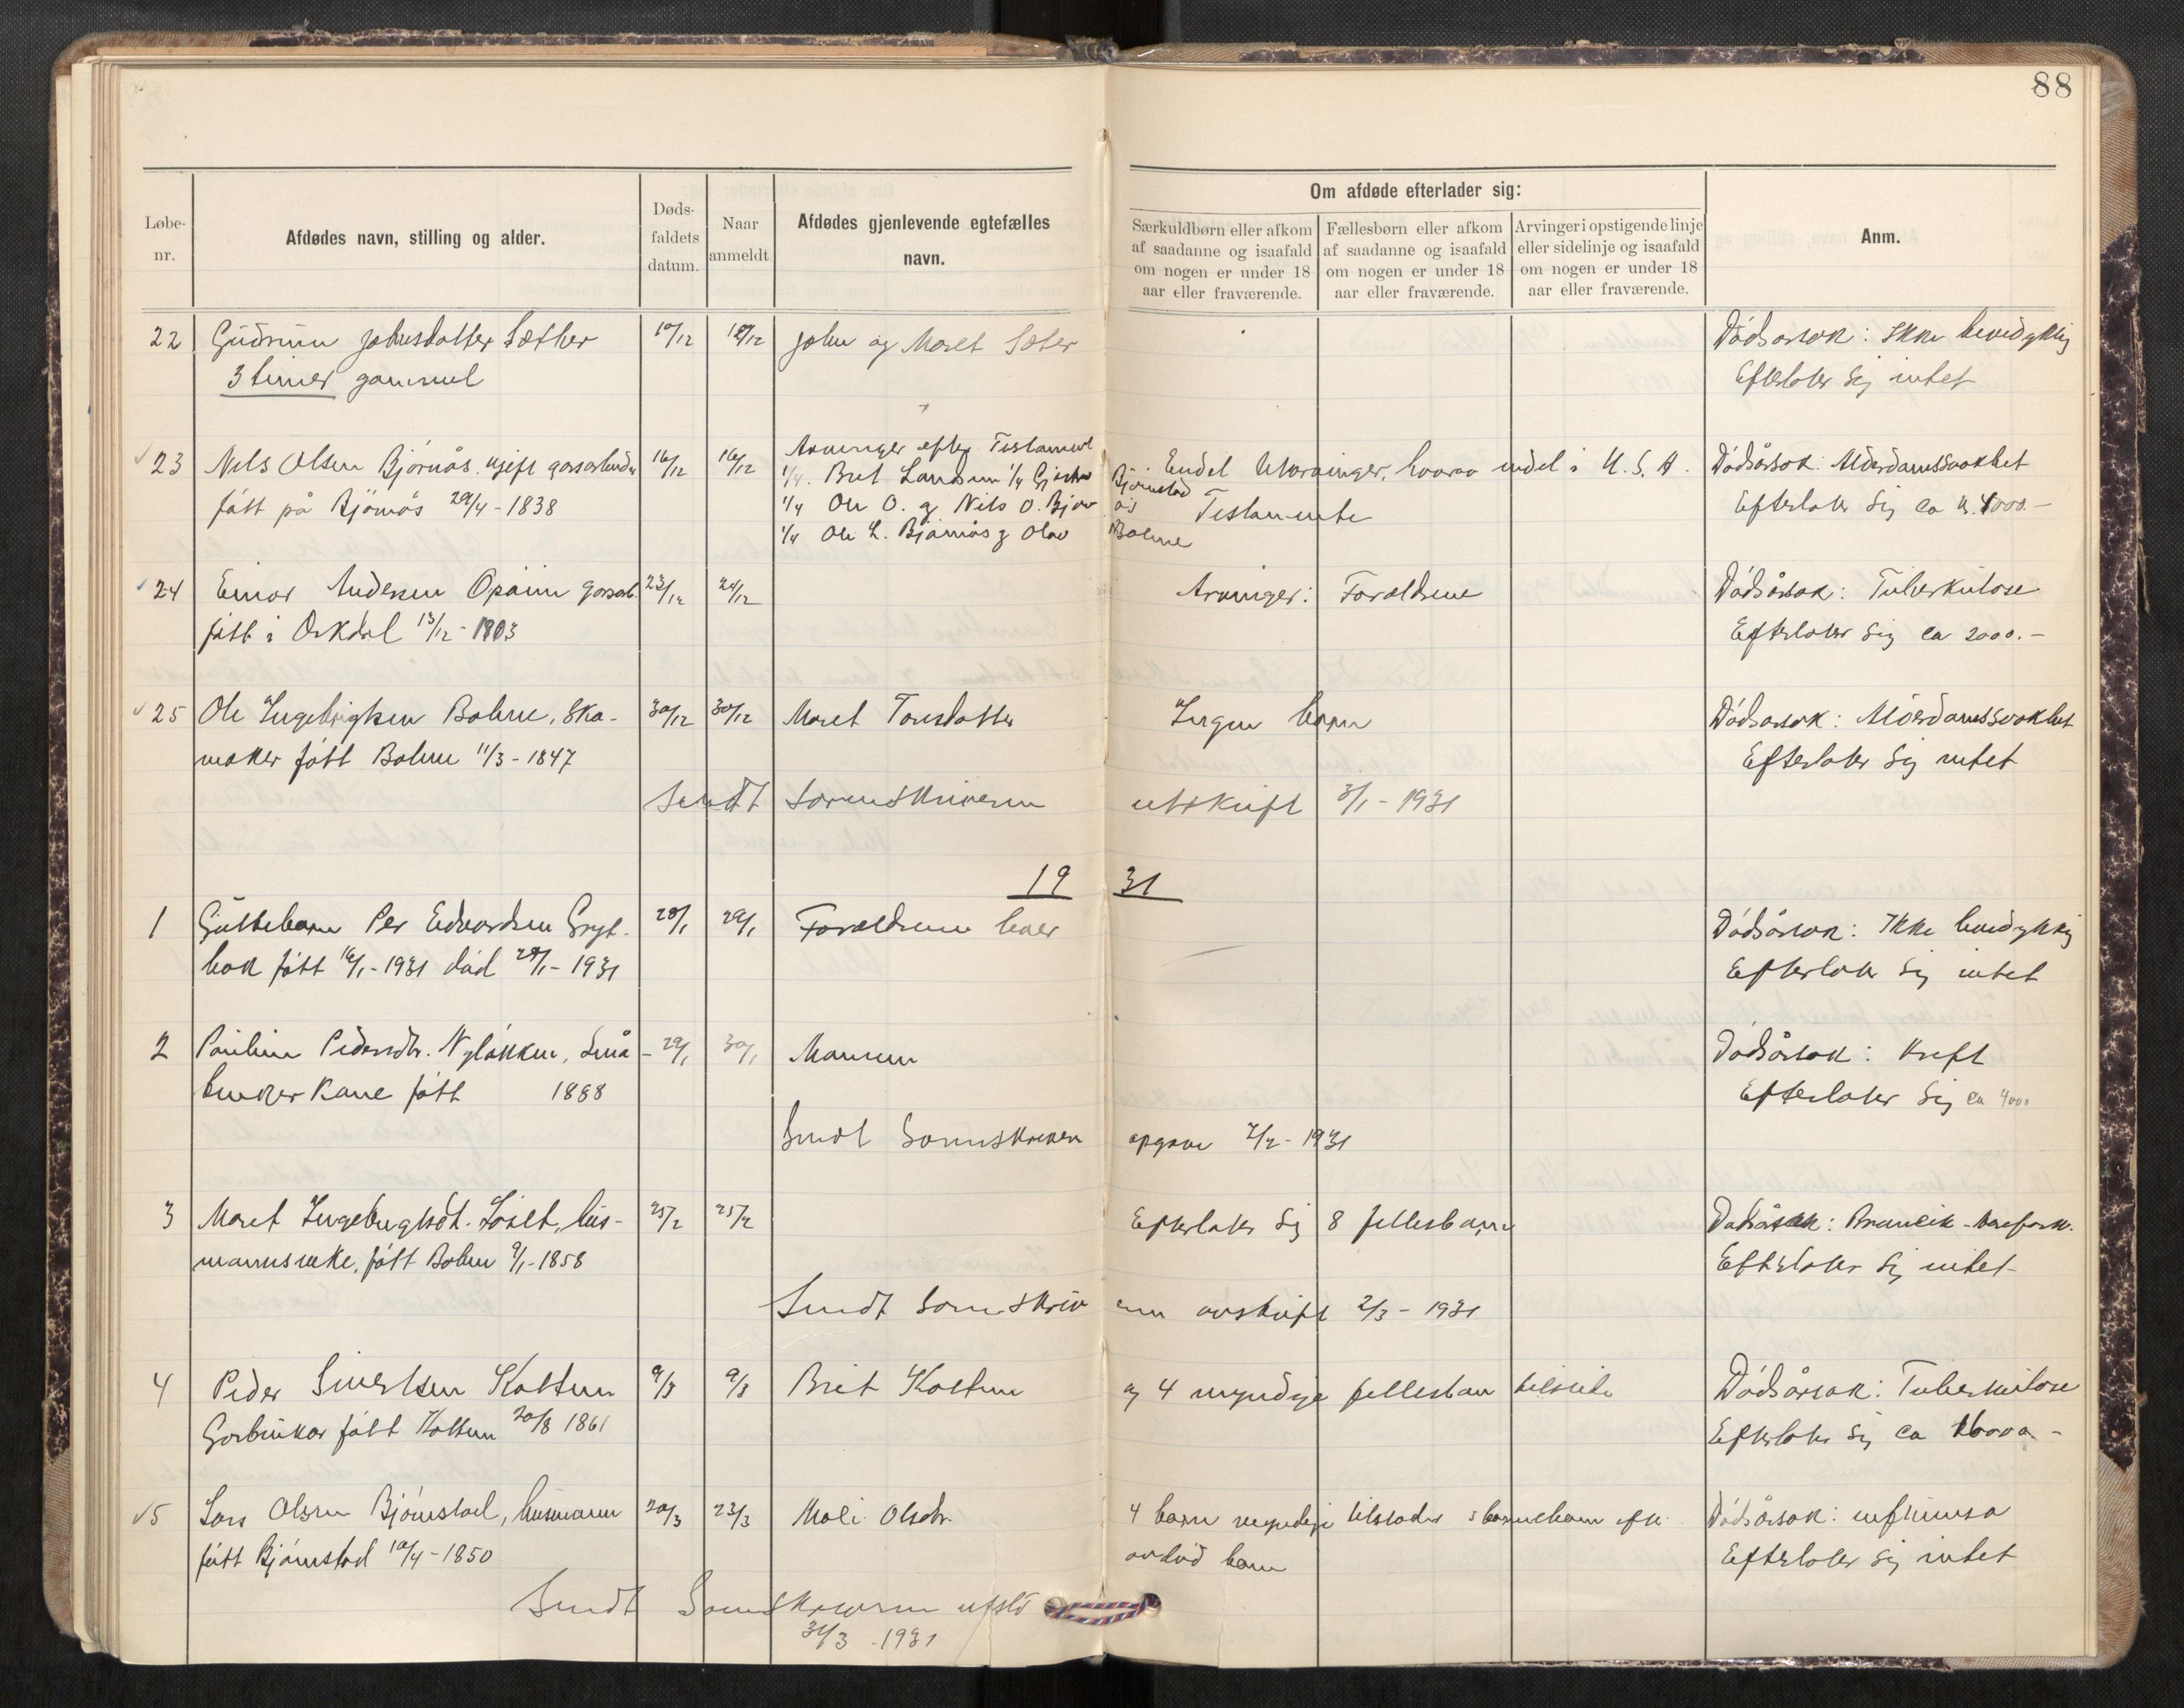 88
Løbe-nr.
Afdødes navn, stilling og alder.
Døds-faldets datum.
Naar anmeldt
Afdødes gjenlevende egtefælles navn.
Om afdøde efterlader sig:
Særkuldbørn eller afkom af saadanne og isaafald om nogen er under 18 aar eller fraværende.
Fællesbørn eller afkom af saadanne og isaafald om nogen er under 18 aar eller fraværende.
Arvinger i opstigende linje eller sidelinje og isaafald om nogen er under 18 aar eller fraværende.
Anm.
22 Gudrun Johnsdatter Sæther 10/12 John og Maret Sæter Dödsorsok: Ikke levedyktig
3 timer gammel Efterlater sig intet
23 Nils Olsen Bjørnås ugift gårdarbeider 16/12 16/12 Arvinger efter Testament Endel Utarvinger, hvorav endel i U.S.A. Dödsårsok: Alderdomssvakhet
født på Bjørnås 29/4-1838 1/4 Brit 1/4 Bjørnstad Efterlater sig ca kr. 4000.-
1/4 Ole O. og Nils O. Bjørnås Testamente
1/4 Ole L. Bjørnås og Olav Bolme
24 Einar Andersen Opøien gårdarb. 23/12 24/12 Arvinger: Foreldrene Dödsårsak: Tuberkulose
født i Orkdal 13/12-1903 Efterlater sig ca 2000.-
25 Ole Ingebrigtsen Bolme, sko- 30/12 30/12 Maret Toresdatter Ingen barn Dödsorsok: Alderdomssvakhet
maker født Bolme 11/3-1847 Efterlater sig intet
Sendt Sorenskriveren utskrift 3/1-1931
1931
1 Guttebarn Per Edvardsen Gryt- 28/1 29/1 Foreldrene lever Dödsårsok: Ikke levedyktig
bak født 16/1-1931 död 28/1-1931 Efterlater sig intet
2 Pauline Pedersdtr. Nyløkken, små- 29/1 30/1 Mannen Dödsårsak: Kreft
bruker Kone født 1888 Efterlater sig ca 4000
Sendt Sorenskriveren opgave 2/2-1931
3 Maret Ingebrigtsdt. Løset, hus- 25/2 25/2 Efterlater sig 8 fellesbarn Dödsårsak: Bronkit
mannsenke, født Bolme 9/1-1858 Efterlater sig intet
Sendt Sorenskriveren avskrift 2/3-1931
4 Peder Sivertsen Kattem 9/3 9/3 Brit Kattum og 4 myndige fellesbarn tilstede Dödsårsak: Tuberkulose
Gårdbruker født Kattem 20/8 1861 Efterlater sig ca 16000.-
5 Lars Olsen Bjørnstad, husmann 20/3 23/3 Mali Olsdtr. 4 barn myndige tilstede barnebarn efter Dödsårsak: influensa
født Bjørnstad 10/4-1850 avdöd barn Efterlater sig intet
Sendt Sorenskriveren
31/3-1931